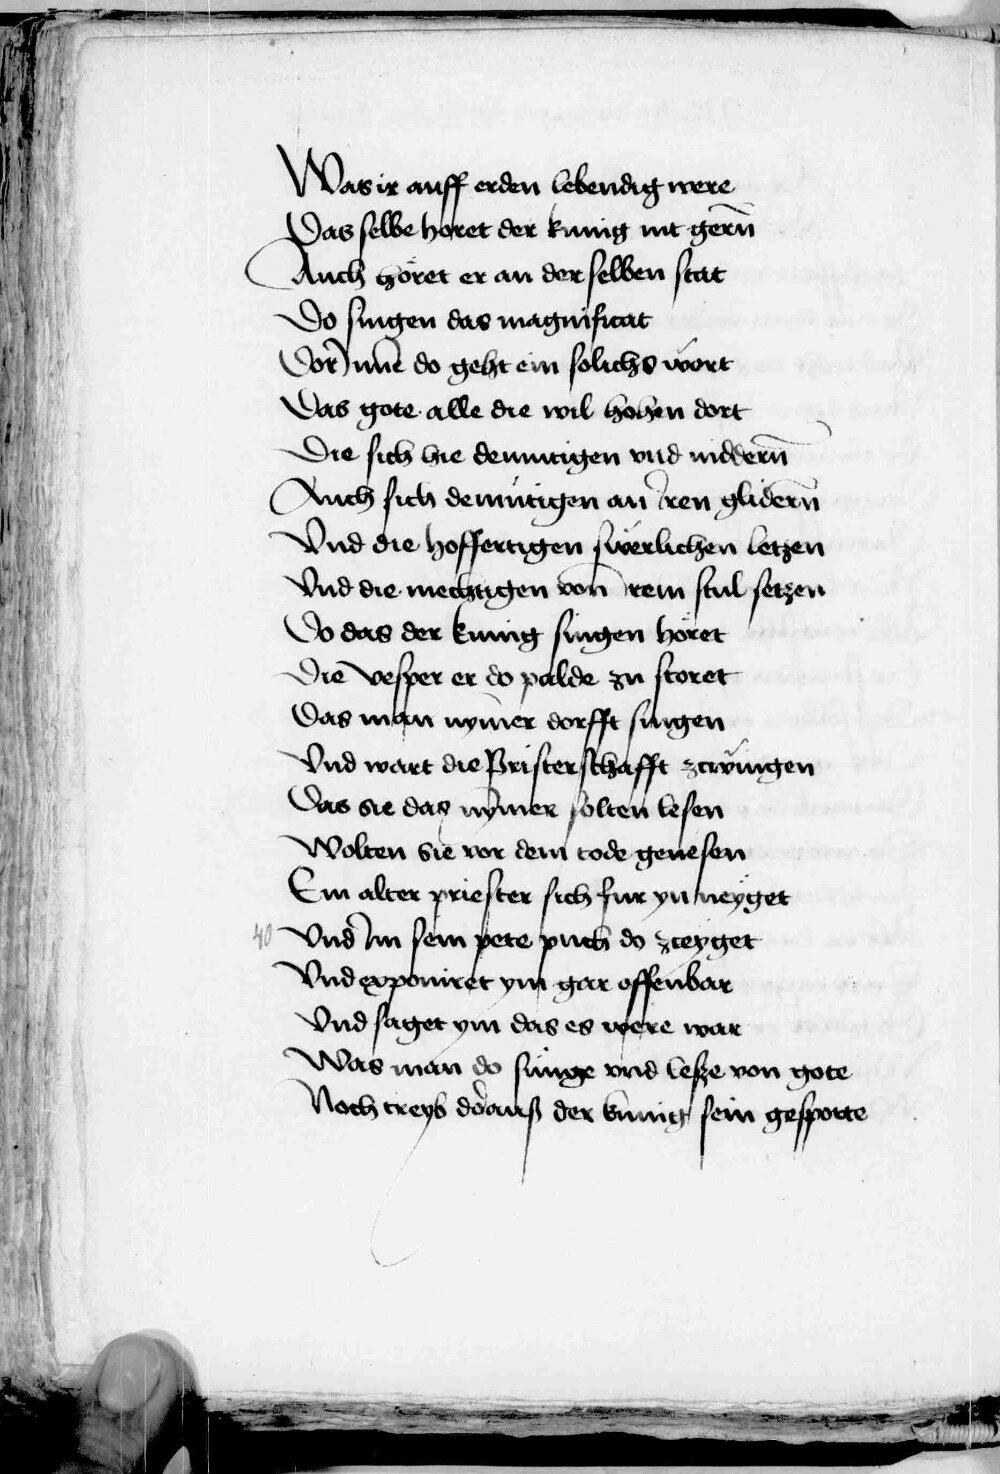 Was ir auff erden lebendig were
Das selbe horet der kunig nit gerñ
Auch höret er an der selben stat
Do singen das magnificat
Dor Inne do geht ein solichs wort
Das gote alle die wil hohen dort
Die sich hie demutigen vnd nidderñ
Auch sich demütigen an Iren gliderñ
Vnd die hoffertigen swerlichen letzen
Vnd die mechtigen von Irem stul setzen
Do das der kunig singen höret
Die vesper er do palde zu storet
Das man nymer dorfft singen
Vnd wart die Pristerschafft zcwingen
Das sie das nymer solten lesen
Wolten sie vor dem tode genesen
Ein alter priester sich fur yn neyget
40 Vnd Im sein pete puch do zceyget
Vnd exponiret ym gar offenbar
Vnd saget ym das es were war
Was man do sünge vnd lesze von gote
Noch treyb dorauß der kunig sein gespotte